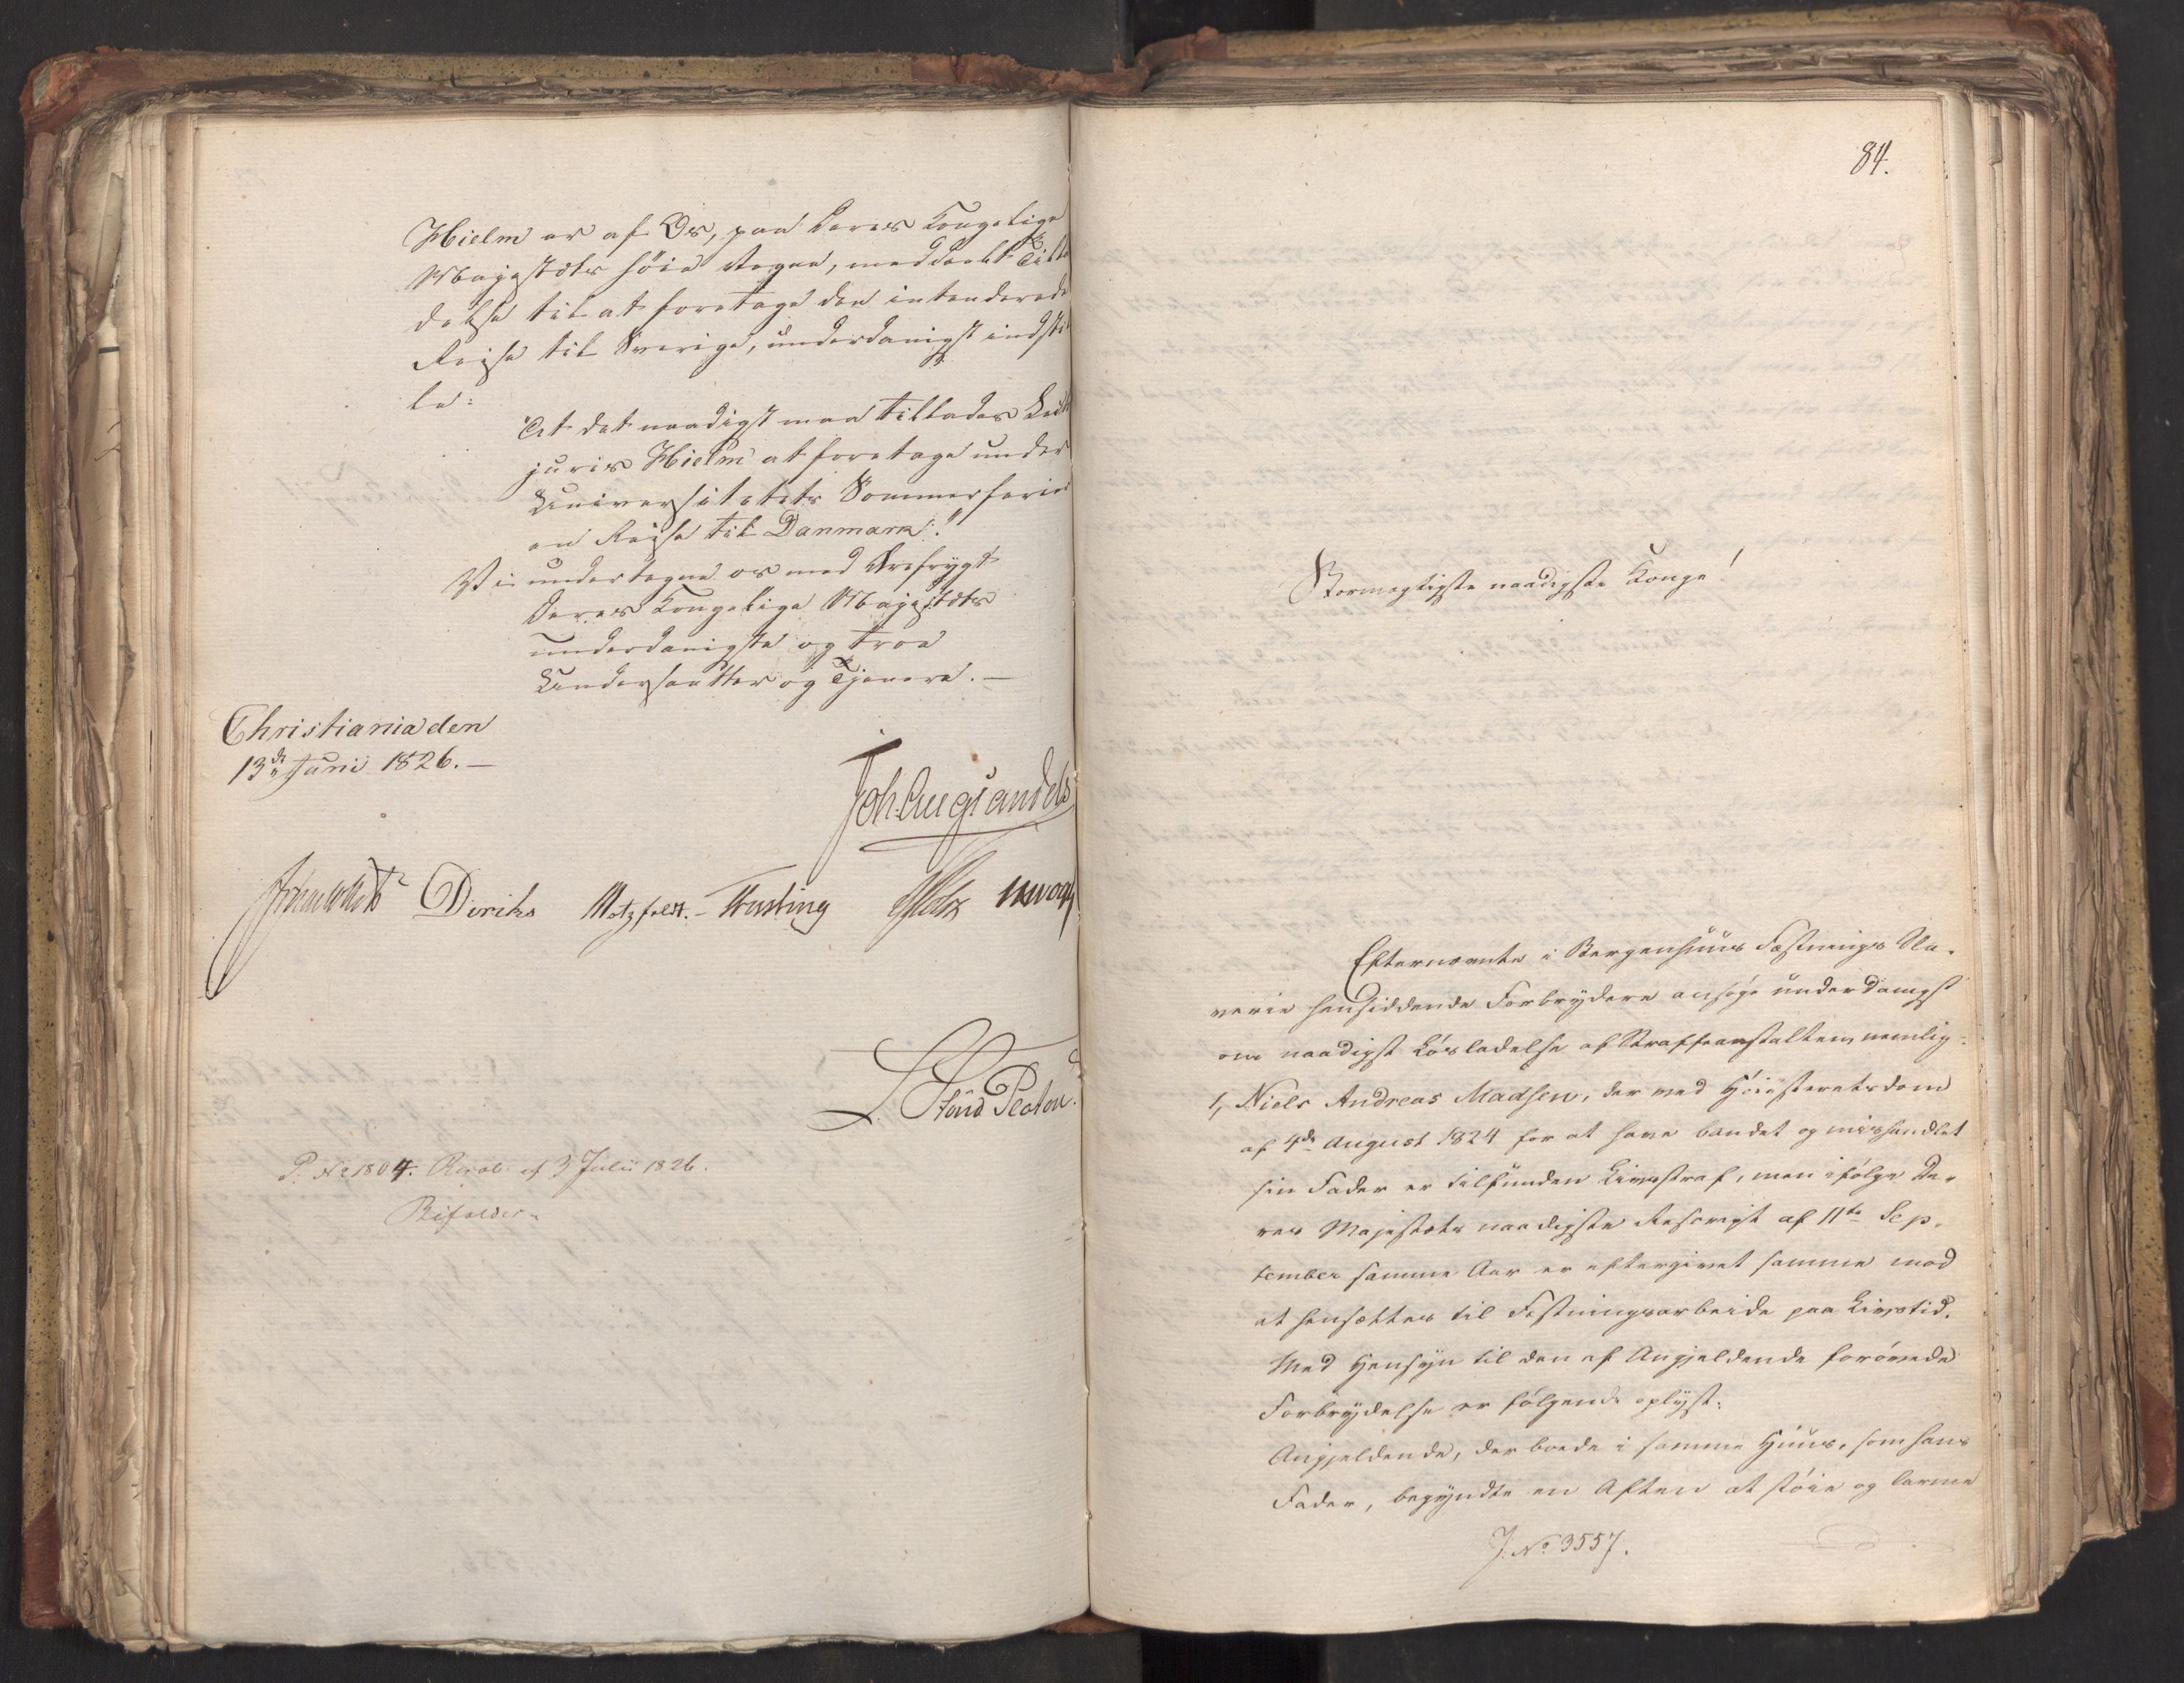 Hielm er af Os, paa Deres Kongelige
Majestets höie Vegne, meddeelt Tilla
delse til at foretage den intenderede
Reise til Sverige, underdanigst indstil
le:
"At det naadigst maa tillades Lect
juris Hielm at foretage under
Universitetets Sommerferie
en Reise til Danmark."
Vi undertegne os med Ærefrygt
Deres Kongelige Majestets
underdanigste og troe
Undersaatter og Tjenere. —
Christiania den
13de Juni 1826. —
Joh. Aug. Sandels
Diriks Motzfeldt. Treschow
L. Stud Platou
P. No 1804. Resol. af 3 Julii 1826.
Bifaldes.
84.
Stormægtigste naadigste Konge!
Efternævnte i Bergenhuus Fæstnings Sla-
verie hensiddende Forbrydere ansøge underdanigst
om naadigst Løsladelse af Straffeanstalten, nemlig:
1, Niels Andreas Madsen, der ved Høiesteretsdom
af 4de August 1824 for at have bandet og mishandlet
sin Fader er tilfunden Livsstraf, men ifølge De-
res Majestæts naadigste Rescript af 11te Sep-
tember samme Aar er eftergivet samme mod
at hensættes til Fæstningsarbeide paa Livstid.
Med Hensyn til den af Angjeldende forøvede
Forbrydelse er følgende oplyst:
Angjeldende, der boede i samme Huus, som hans
Fader, begyndte en Aften at støie og larme
J. No 3557.